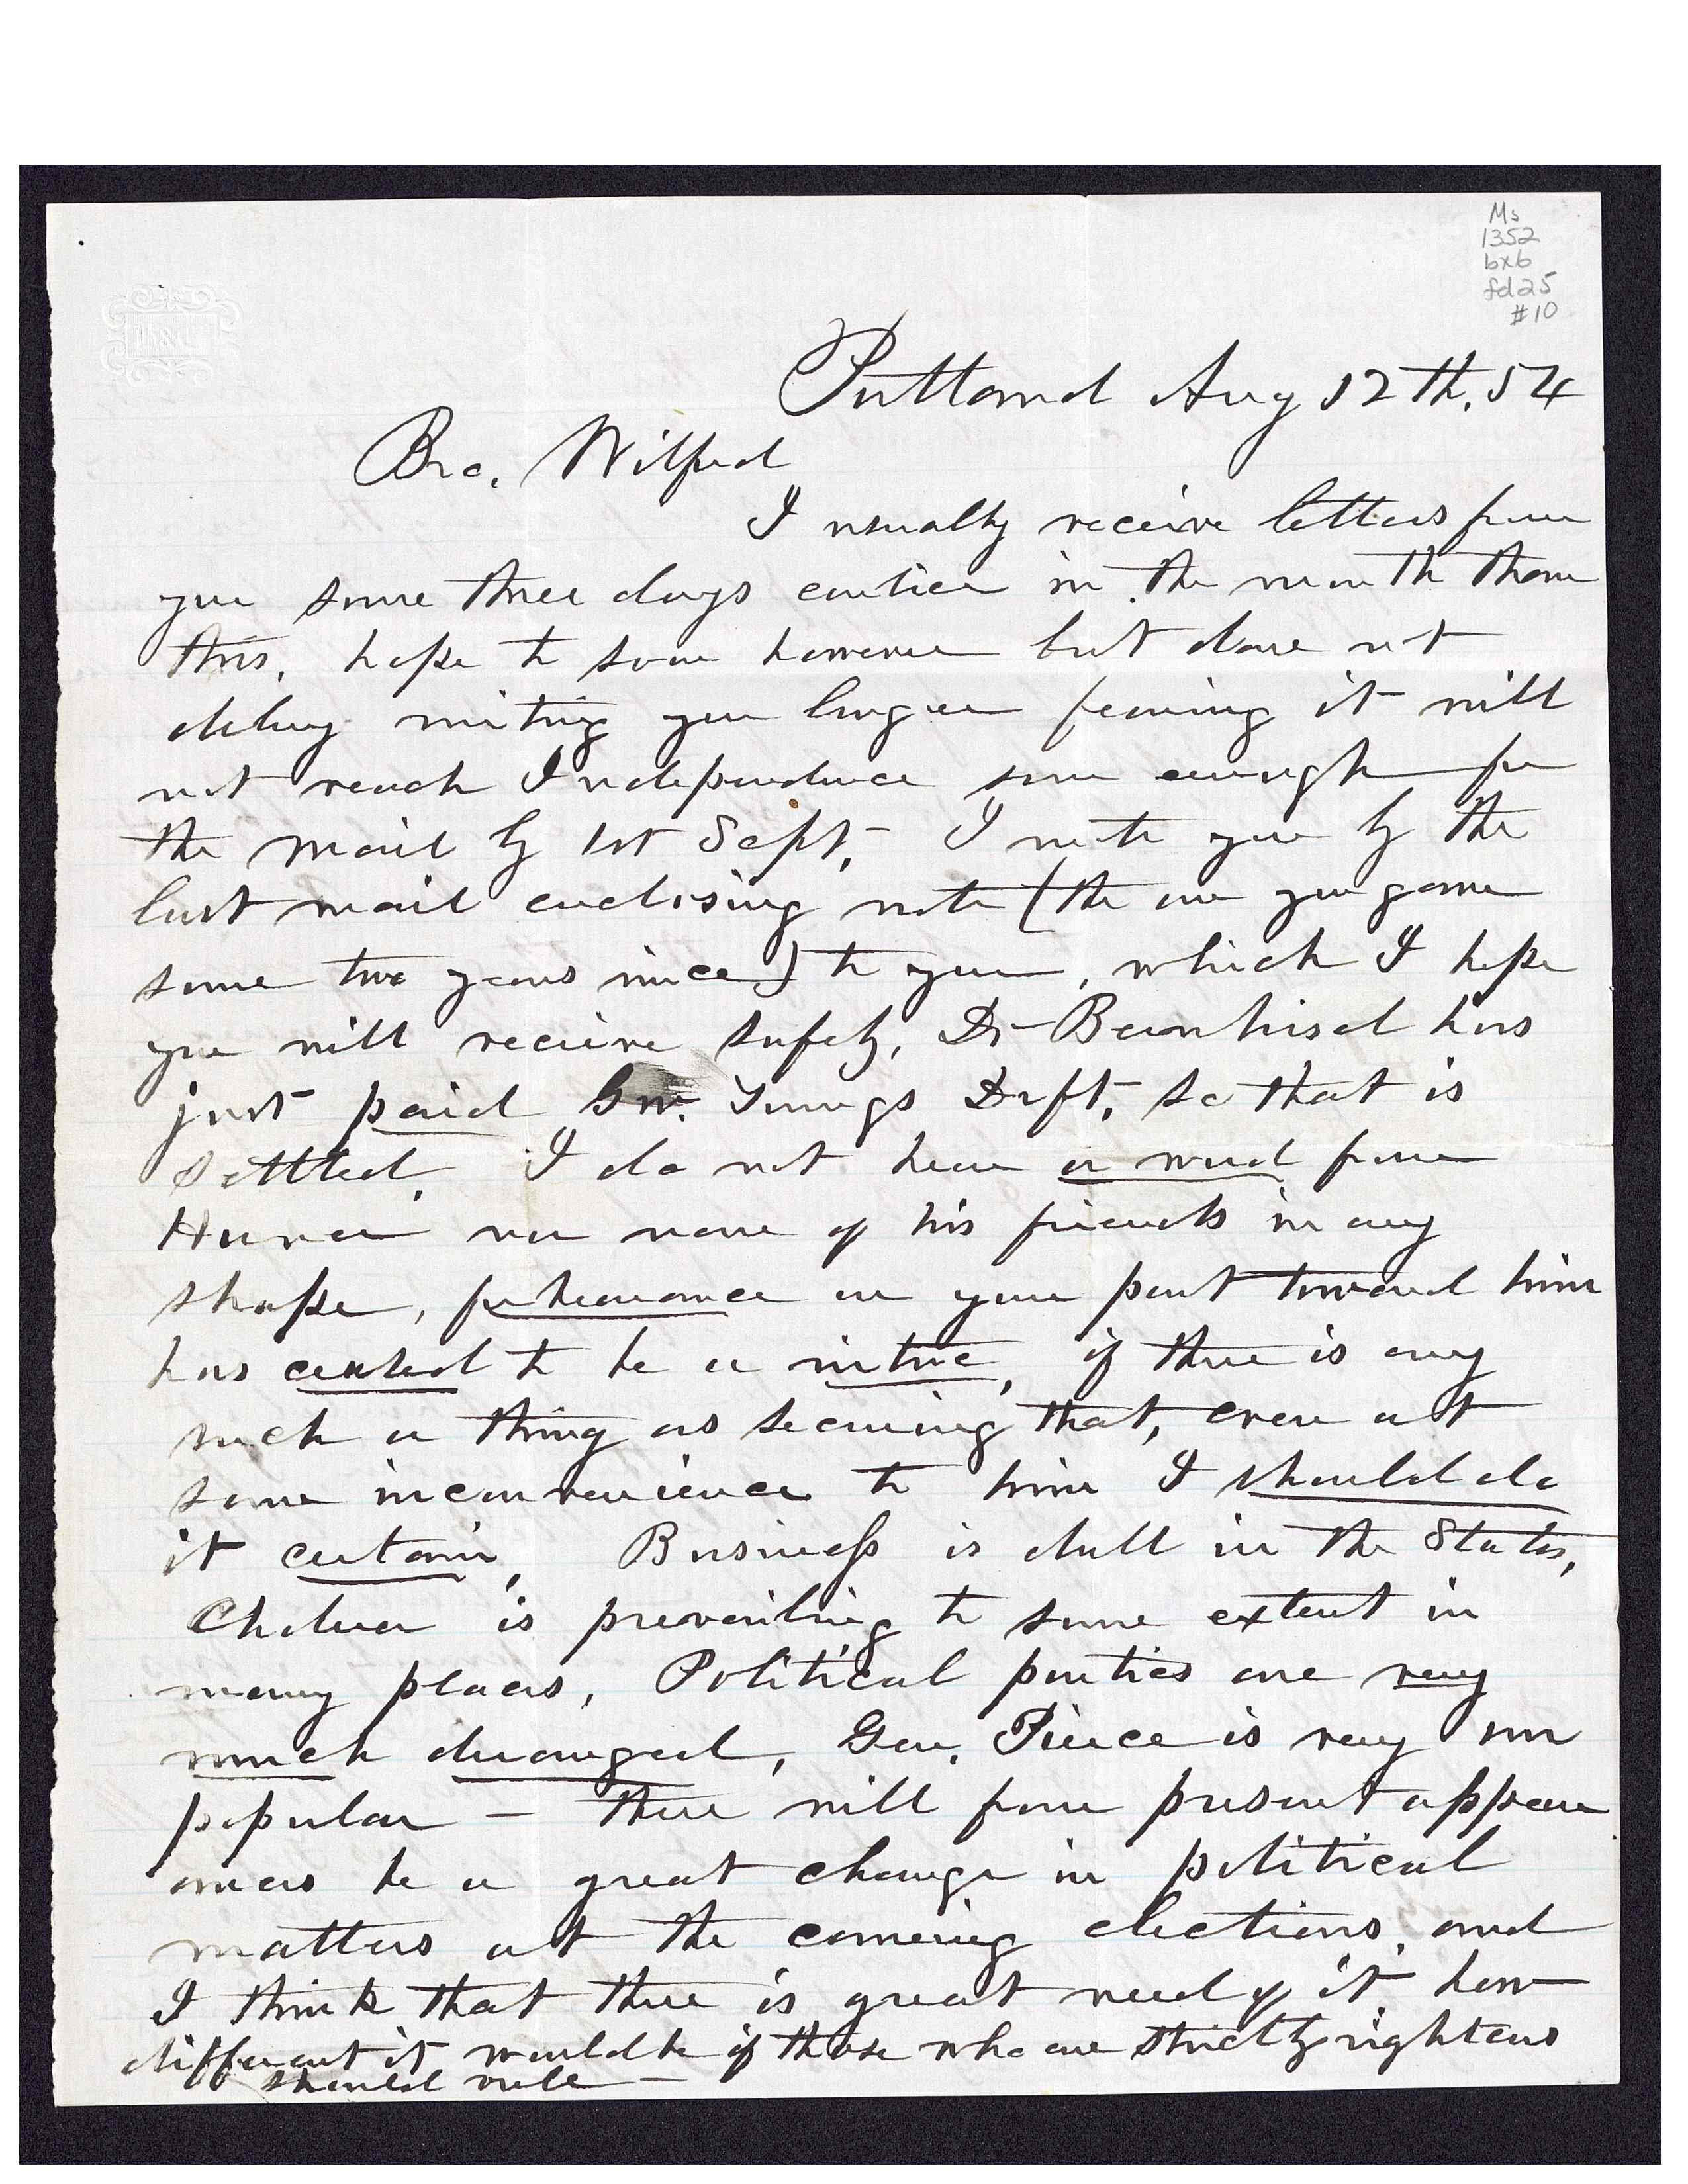 Ms
1352
bx6
fd25
#10
Portland Aug 12th. 54
Bro. Wilford
I usually receive letters from
you some three days earlier in the month than
this, hope to soon however but dare not
delay writing you longer fearing it will
not reach Independence soon enough for
the mail by 1st Sept, I wrote you by the
last mail enclosing note (the one you gave
some two years since) to you, which I hope
you will receive safely, Dr Bernhisel has
just paid Gov. Youngs Drft, so that is
settled, I do not hear a word from
nor none of his friends in any
shape, forbearance on your part toward him
has ceased to be a virtue, if there is any
such a thing as securing that, even at
some inconvenience to him I should do
it certain, Business is dull in the States,
Cholera is prevailing to some extent in
many places, Political parties are very
much deranged, Gen. Pierce is very un
popular – there will from present appear
ances be a great change in political
matters at the coming elections, and
I think that there is great need of it how
different it would be if those who are strictly righteous
should rule –